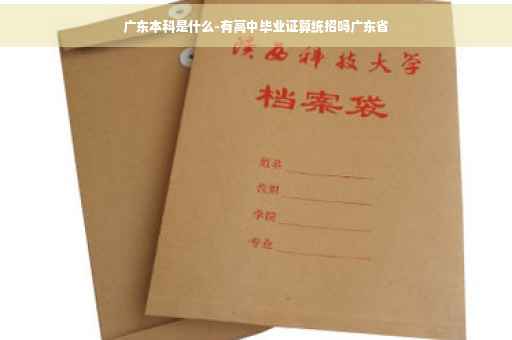 广东本科是什么-有高中毕业证算统招吗广东省
陕西科技大学
档案袋
姓名
学院
专业